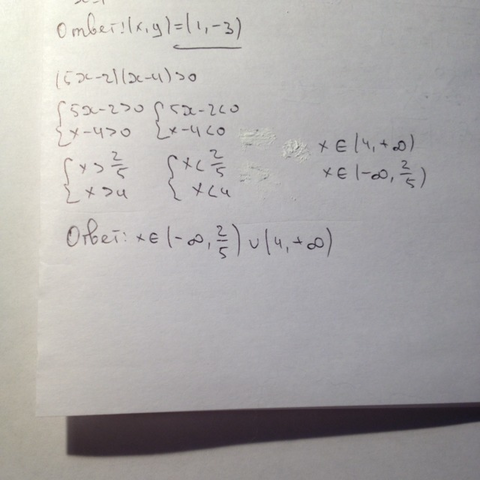 Ответ: (x,y)=(1,-3)
(5x-2)(x-4)>0
{5x-2>0 {5x-2<0
{x-4>0 {x-4<0
x∈(4,+∞)
{x>2/5 {x<2/5
{x>4 {x<4
x∈(-∞,2/5)
Ответ: x∈(-∞,2/5)∪(4,+∞)